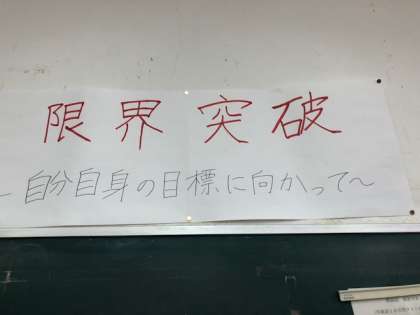 限界突破
~自分自身の目標に向かって~